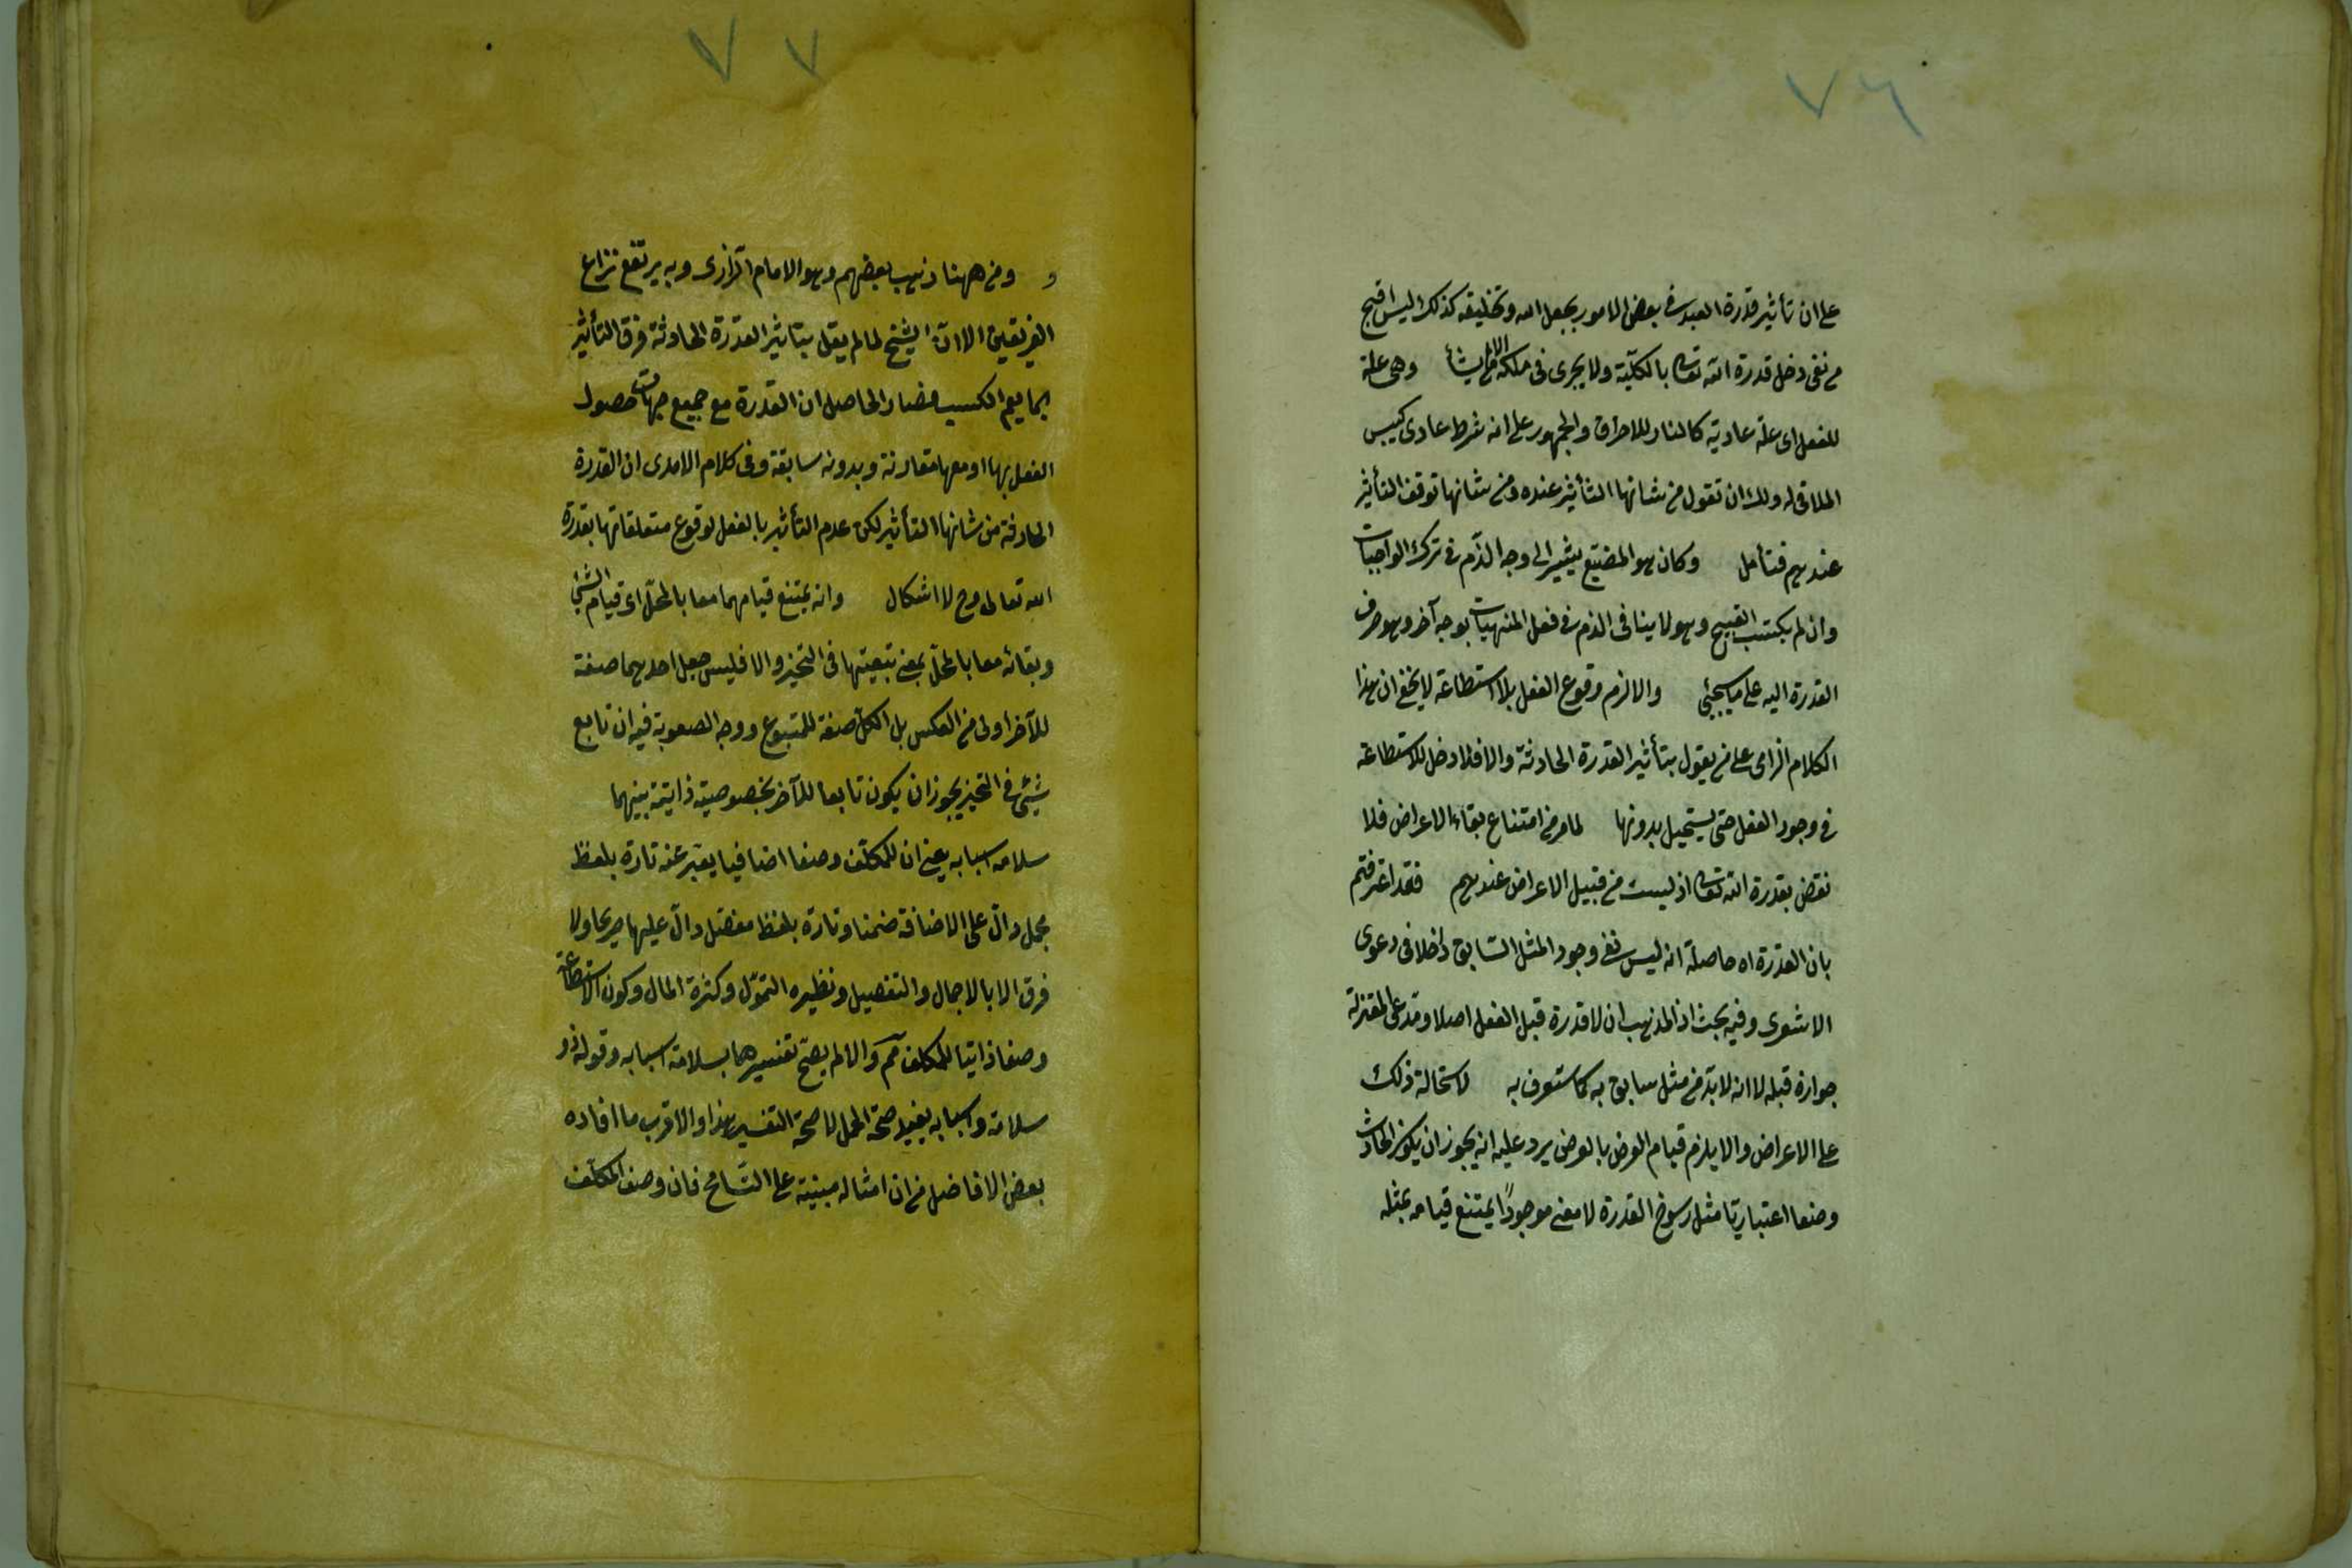 ٧٦
على ان تأثير قدرة العبد فى بعض الامور بجعل الله وتخليقه كذلك ليس اقبح
من نفى دخل قدرة الله تعالى بالكلية ولا يجرى فى ملكه الا ما يشأ وهى علة
للفعل اى علة عادية كالنار للاحراق والجمهور على انه شرط عادى كيبس
الملاقى له ولك ان تقول من شانها التأثير عنده ومن شانها توقف التأثير
عندهم فتأمل وكان هو المضيّع يشير الى وجه الذّم فى ترك الواجبات
وان لم يكتسب القبيح وهو لا ينافى الذم فى فعل المنهيات بوجه آخر وهو صرف
القدرة اليه على ما سيجئ والا لزم وقوع الفعل بلا استطاعة لا يخفى ان هذا
الكلام الزامى على من يقول بتأثير القدرة الحادثة والا فلا دخل للاستطاعة
فى وجود الفعل حتى يستحيل بدونها لما مر من امتناع بقاء الاعراض فلا
نقض بقدرة الله تعالى اذ ليست من قبيل الاعراض عندهم فقد اعترفتم
بان القدرة اه حاصله انه ليس نفى وجود المثل السّابق داخلا فى دعوى
الاشعرى وفيه بحث اذ المذهب ان لا قدرة قبل الفعل اصلا ومدعى المعتزلة
جوازه قبله لا انه لا بدّ من مثل سابق به كما ستعرف به لاستحالة ذلك
على الاعراض والا يلزم قيام العرض بالعرض يرد عليه انه يجوز ان يكون الحادث
وصفا اعتباريّا مثل رسوخ القدرة لا معنى موجوداً يمتنع قيامه بمثله
٧٧
و ومن ههنا ذهب بعضهم وهو الامام الرازى وبه يرتفع نزاع
الفريقين الا انّ الشيخ لما لم يقل بتاثير القدرة الحادثة فرق التأثير
بما يعم الكسب فصار الحاصل ان القدرة مع جميع جهات حصول
الفعل بها او معها مقارنة وبدونه سابقة وفى كلام الامدى ان القدرة
الحادثة من شانها التأثير لكن عدم التأثير بالفعل لوقوع متعلقاتها بقدرة
الله تعالى وح لا اشكال وانه يمتنع قيامهما معا بالمحلّ اى قيام الشئ
وبقائه معا بالمحلّ بمعنى تبعيتها فى التحيز والا فليس جعل احدهما صفة
للآخر اولى من العكس بل الكل صفة للمتبوع ووجه الصعوبة فيه ان تابع
شئ فى التحيز يجوز ان يكون تابعا للآخر بخصوصية ذاتية بينهما
سلامة اسبابه يعنى ان للمكلّف وصفا اضافيا يعبّر عنه تارة بلفظ
مجمل دالّ على الاضافة ضمنا وتارة بلفظ مفصّل دالّ عليها صريحا ولا
فرق الا بالاجمال والتفصيل ونظيره التموّل وكثرة المال وكون الاستطاعة
وصفا ذاتيا للمكلف مم والا لم يصحّ تفسيرها بسلامة اسبابه وقوله ذو
سلامة واسبابه يفيد صحّة الحمل لا صحّة التفسير هذا والاقرب ما افاده
بعض الافاضل من ان امثاله مبنية على التّسامح فان وصف المكلّف